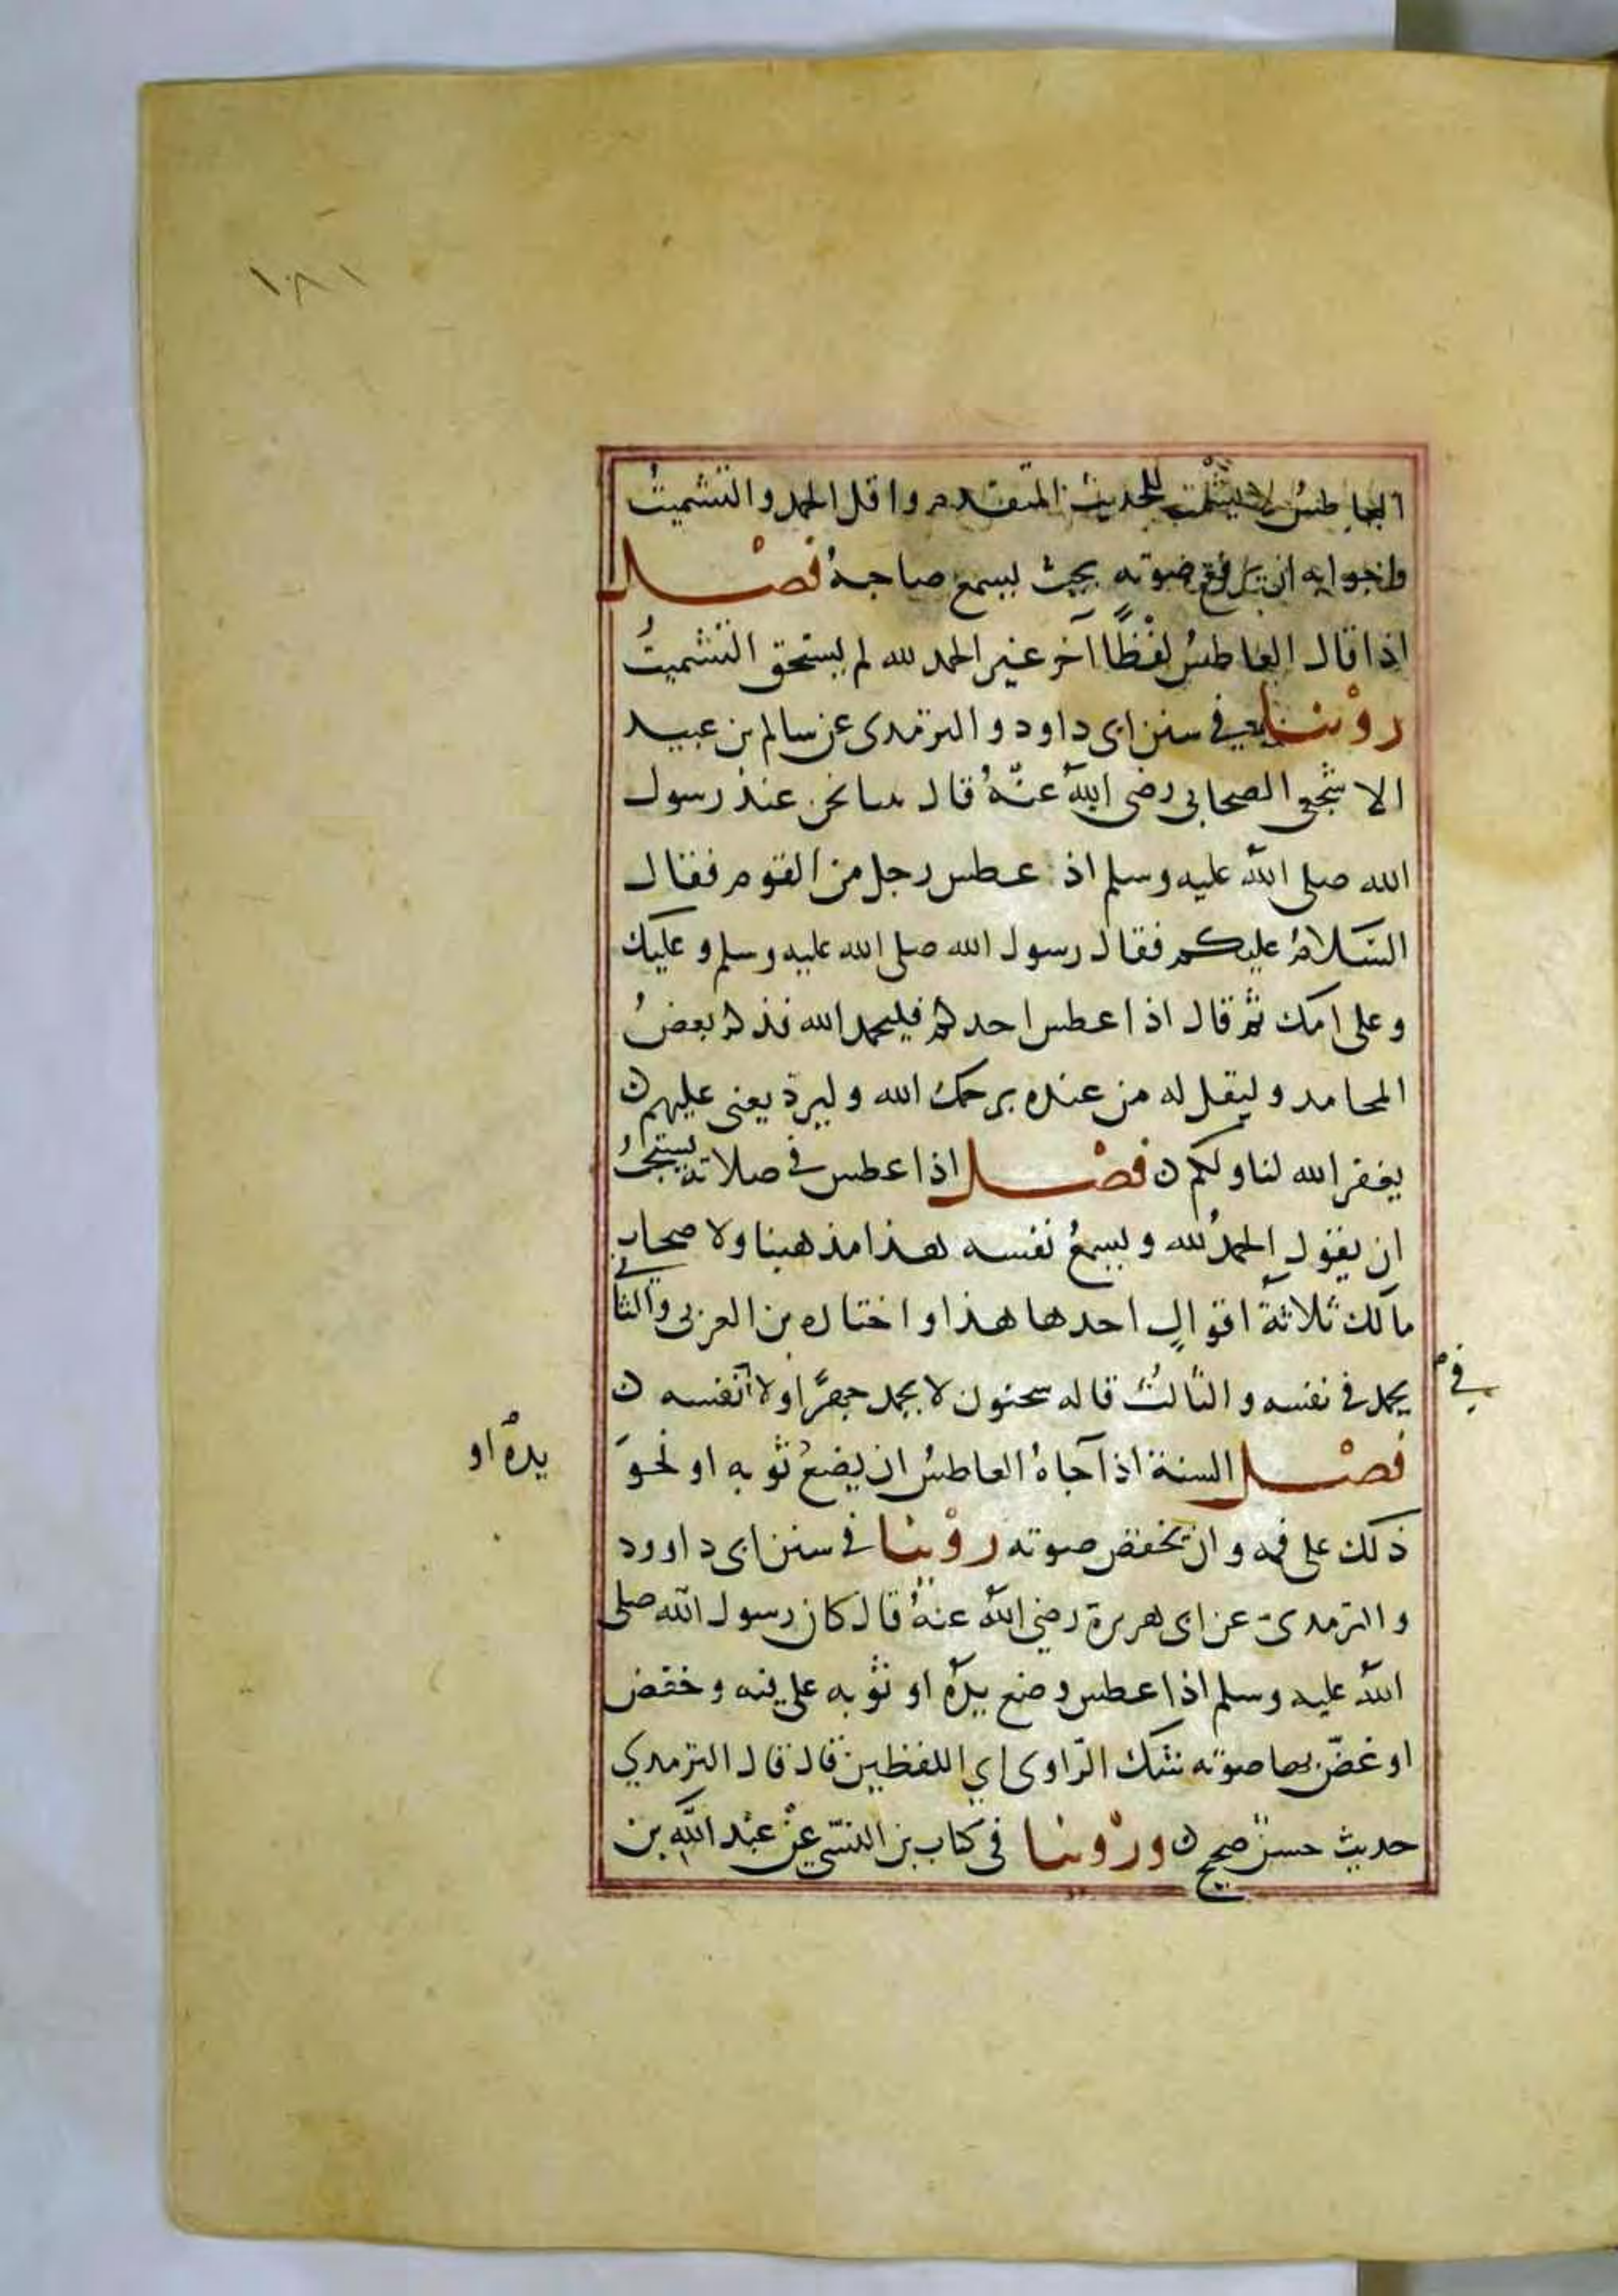 ١٨١
العاطس لا يشمت للحديث المتقدم واقل الحمد والتشميتُ
وجوابه ان يرفع صوته بحيث يسمع صاحبهُ فصْل
اذا قال العاطسُ لفْظًا آخر غير الحمد لله لم يستحق التشميتُ
روْينا في سنن ابى داود والترمدى عن سالم بن عبيد
الاشجعى الصحابى رضى اللهُ عنْهُ قال بينا نحن عند رسول
الله صلى اللهُ عليه وسلم اذ عطس رجل من القوم فقال
السَّلامُ عليكم فقال رسول الله صلى الله عليه وسلم وعليك
وعلى امك ثم قال اذا عطس احدكم فليحمد الله فذكر بعضُ
المحامد وليقل له من عنده يرحمك الله وليردّ يعنى عليهم ن
يغفر الله لنا ولكم ن فصْل اذا عطس في صلاته يستحبُّ
ان يقول الحمدُ لله ويسمعُ نفسه هذا مذهبنا ولاصحاب
مالك ثلاثةُ اقوالٍ احدها هذا واختاره بن العربى والثانى
يحمد في نفسه والثالثُ قاله سحنون لا يحمد جهرًا ولا نفسه ن
في
فصْل السنة اذا جاهُ العاطسُ ان يضعُ ثوبه او نحوَ
يدهُ او
ذلك على فمه وان يخفض صوته روْينا في سنن ابى داوود
والترمدى عن ابى هريرة رضي اللهُ عنهُ قال كان رسول الله صلى
اللهُ عليه وسلم اذا عطس وضع يدهُ او ثوبه على فيه وخفض
او غضّ بها صوته شك الرّاوى اي اللفظين قال قال الترمدي
حديث حسنٌ صحيح ن وروْينا فى كتاب بن السنّي عنْ عبْد اللَّه بن